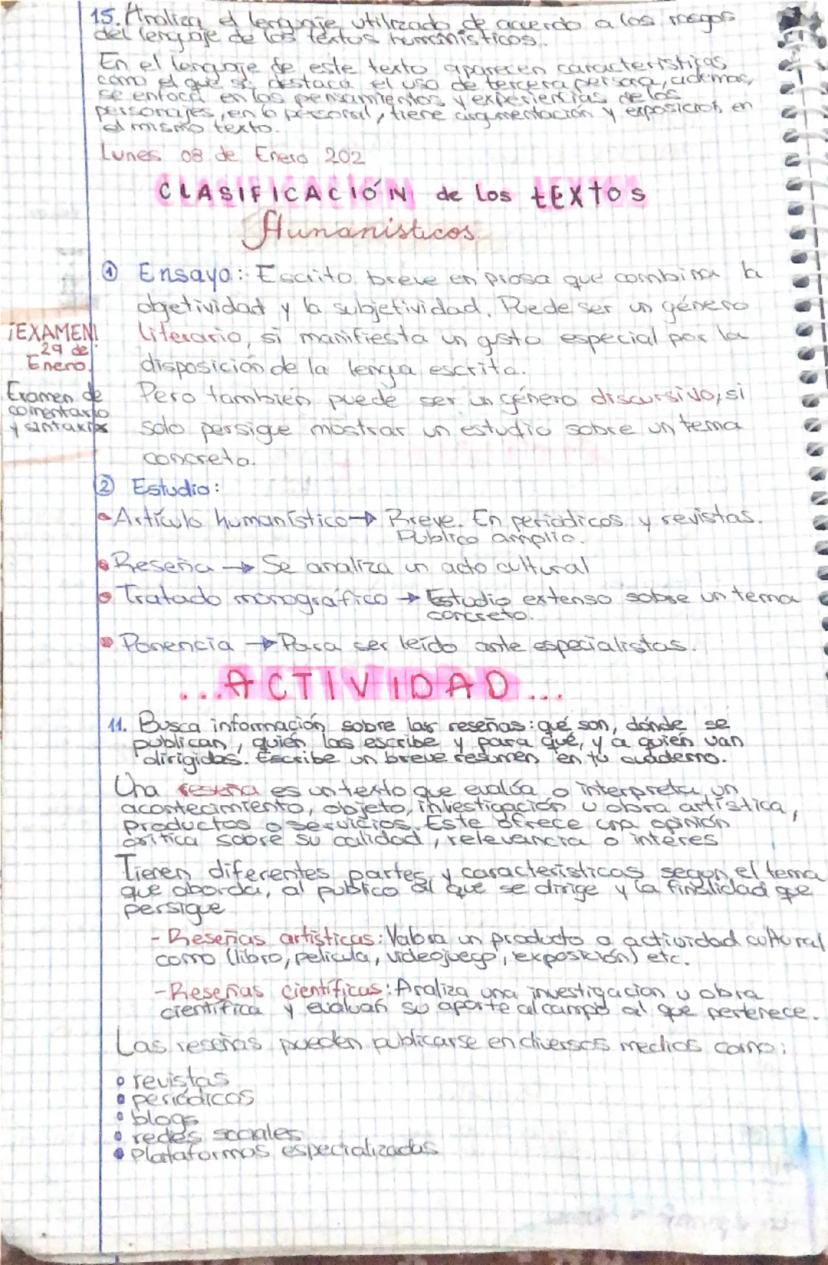 15. Analiza el lenguaje utilizado de acuerdo a los rasgos
del lenguaje de los textos humanísticos.
En el lenguaje de este texto aparecen características
como el que se destaca el uso de tercera persona, además,
se enfoca en los pensamientos y experiencias de los
personajes, en lo personal, tiene argumentación y exposición en
el mismo texto.
Lunes 08 de Enero 202
CLASIFICACIÓN de Los tEXtOS
Humanísticos
① Ensayo: Escrito breve en prosa que combina la
objetividad y la subjetividad. Puede ser un género
literario, si manifiesta un gusto especial por la
disposición de la lengua escrita.
¡EXAMEN!
29 de
Enero
Examen de
comentario
y sintaxis
Pero también puede ser un género discursivo, si
solo persigue mostrar un estudio sobre un tema
concreto.
② Estudio:
• Artículo humanístico → Breve. En periódicos y revistas.
Público amplio.
• Reseña → Se analiza un acto cultural
• Tratado monográfico → Estudio extenso sobre un tema
concreto.
• Ponencia → Para ser leído ante especialistas.
...ACTIVIDAD...
11. Busca información sobre las reseñas: qué son, dónde se
publican, quién las escribe y para qué, y a quién van
dirigidas. Escribe un breve resumen en tu cuaderno.
Una reseña es un texto que evalúa o interpreta un
acontecimiento, objeto, investigación u obra artística,
productos o servicios. Este ofrece una opinión
crítica sobre su calidad, relevancia o interés
Tienen diferentes partes y características según el tema
que aborda, al público al que se dirige y la finalidad que
persigue
- Reseñas artísticas: Valora un producto o actividad cultural
como (libro, película, videojuego, exposición) etc.
- Reseñas científicas: Analiza una investigación u obra
científica y evalúan su aporte al campo al que pertenece.
Las reseñas pueden publicarse en diversos medios como:
• revistas
• periódicos
• blogs
• redes sociales
• Plataformas especializadas